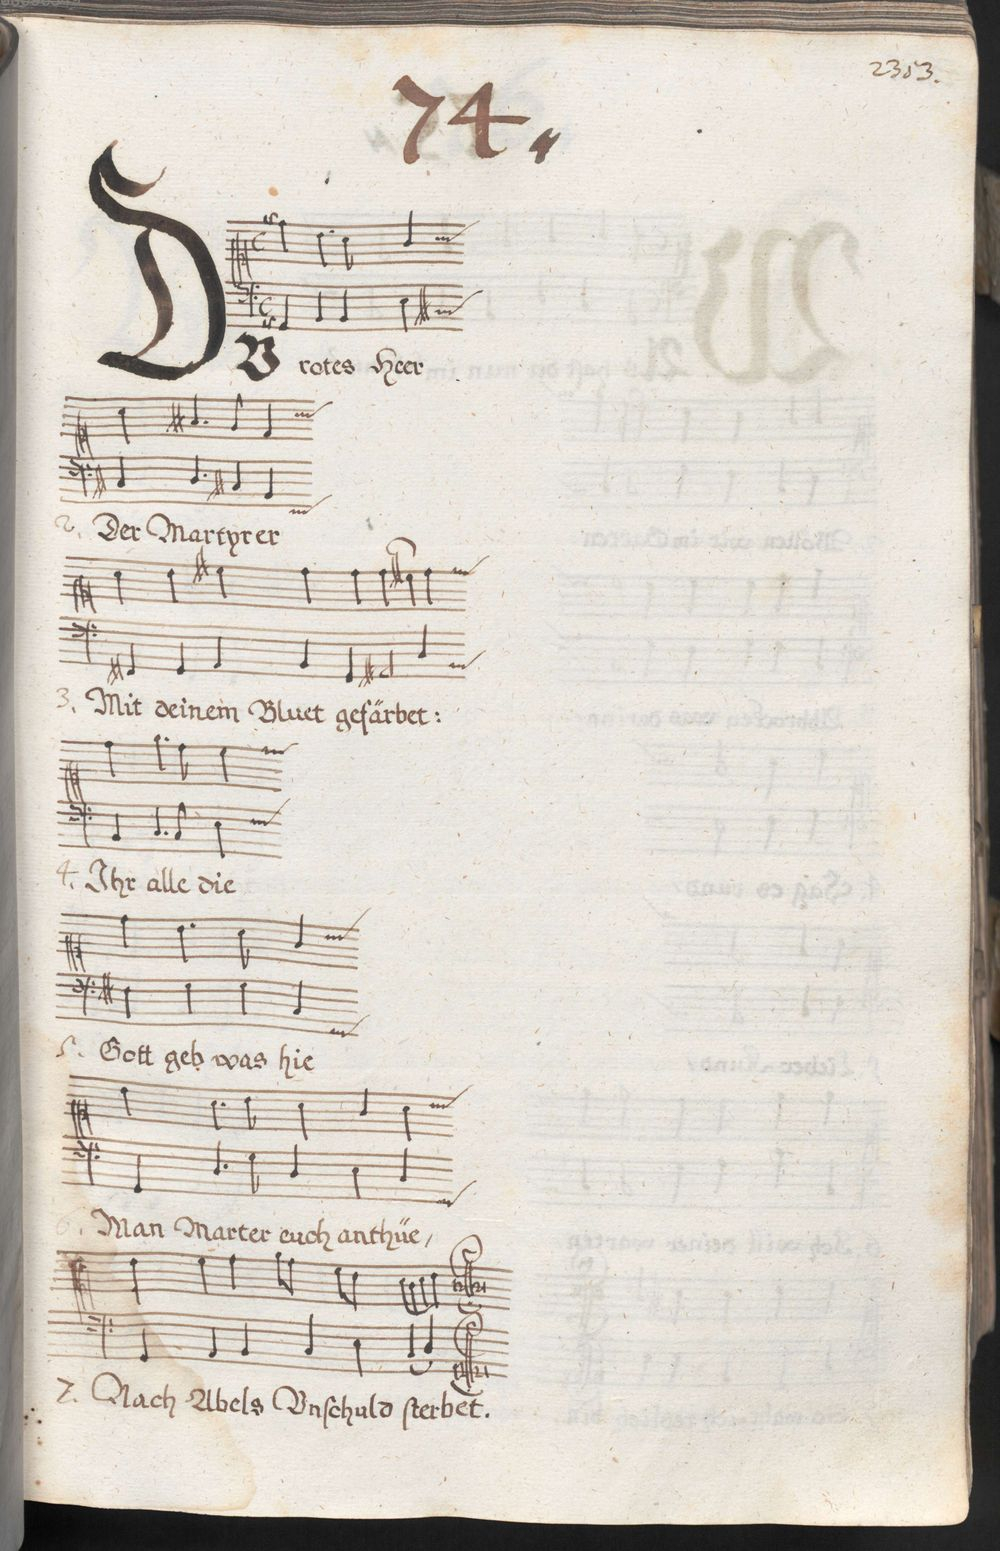 2353.
74.
DV rotes Heer
2. Der Martyrer
3. Mit deinem Bluet gefärbet:
4. Ihr alle die
5. Gott geb was hie
6. Man Marter euch anthüe,
7. Nach Abels Vnschuld sterbet.